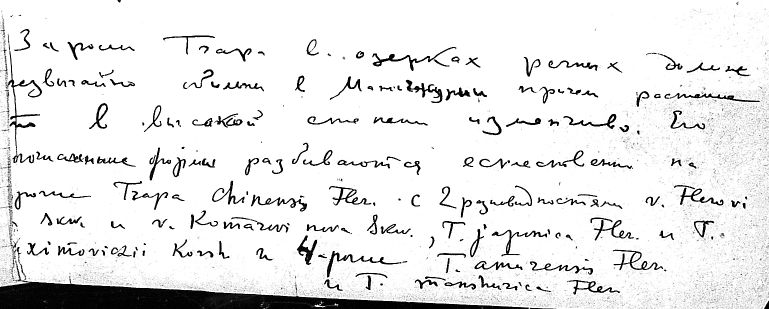 Заросли Trapa в озерках речных долин
чрезвычайно обильны в Манчжурии причем растение
это в высокой степени изменчиво. Его
многочисленные формы разбиваются естественно на
Trapa chinensis Fler. с 2 разновидностями v. Flerovi
Skw. и v. Komarovi nova Skw., T. japonica Fler. и T.
ximoviczii Korsh и 4-рогие T. amurensis Fler.
и T. manshurica Fler